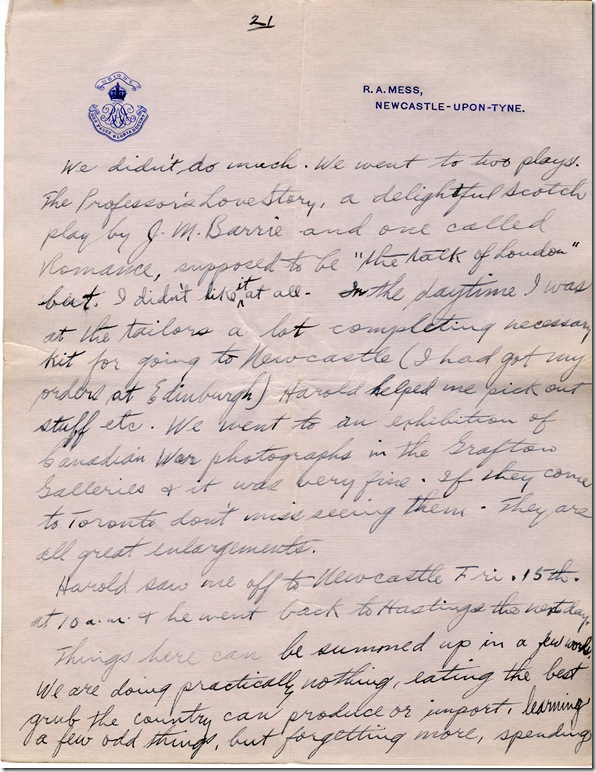 21
UBIQUE
R. A. MESS,
NEWCASTLE-UPON-TYNE.
We didn't do much. We went to two plays.
The Professor's Love Story, a delightful Scotch
play by J. M. Barrie and one called
Romance, supposed to be "the talk of London"
but I didn't like it at all. In the daytime I was
at the tailors a lot completing necessary
kit for going to Newcastle (I had got my
orders at Edinburgh) Harold helped me pick out
stuff etc. We went to an exhibition of
Canadian War photographs in the Grafton
Galleries & it was very fine. If they come
to Toronto don't miss seeing them. They are
all great enlargements.
Harold saw me off to Newcastle Fri. 15th.
at 10 a.m. & he went back to Hastings the next day.
Things here can be summed up in a few words.
We are doing practically nothing, eating the best
grub the country can produce or import, learning
a few odd things, but forgetting more, spending